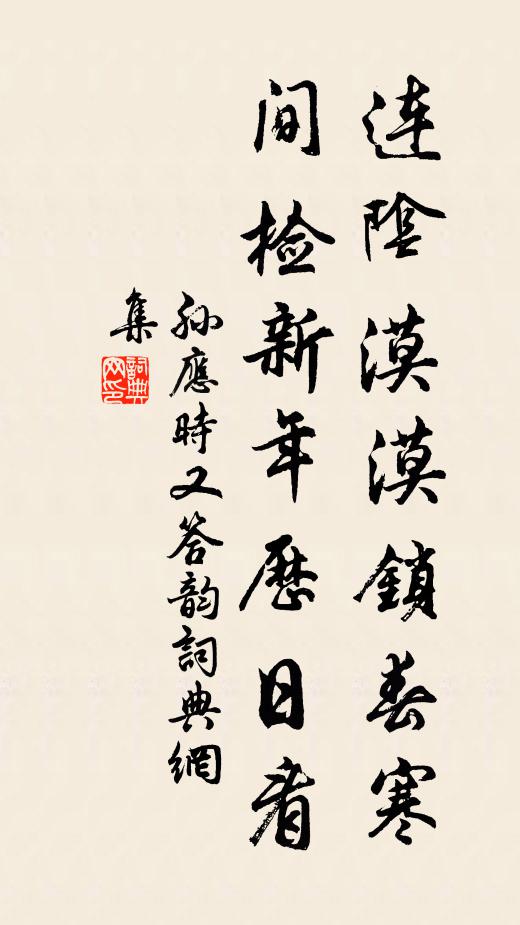 連陰漠漠鎖春寒
间检新年歷日看
孙應時又答韵詞典網
集
詞典
网印